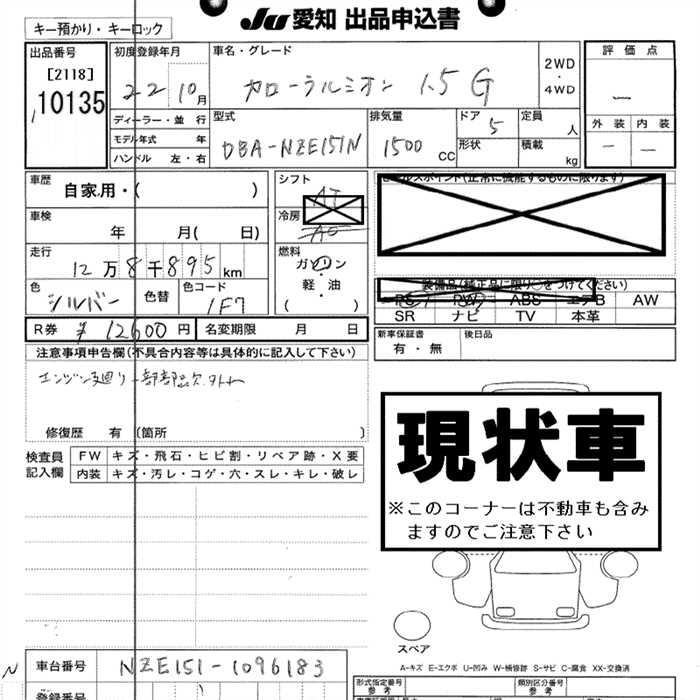 JU 愛知 出品申込書
キー預かり・キーロック
出品番号
[2118]
10135
初度登録年月
22 10月
ディーラー・並行
モデル年式 年
ハンドル 左・右
車名・グレード
カローラルミオン 1.5 G
2WD
・
4WD
型式
DBA-NZE151N
排気量
1500 CC
ドア
5
形状
定員
人
積載
kg
評価点
—
外装 内装
— —
車歴
自家用・( )
車検
年 月( 日)
走行
12万8千895km
色
シルバー
色替
色コード
1F7
シフト
AT
冷房
AC
燃料
ガソリン
・
軽・油
( )
R券 ¥12600円
名変期限 月 日
セールスポイント(正常に機能するものに限ります)
装備品(純正品に限り○をつけてください)
PS PW ABS エアB AW
SR ナビ TV 本革
新車保証書
有・無
後日品
注意事項申告欄(不具合内容等は具体的に記入して下さい)
エンジン廻り一部部品欠品
修復歴 有 〔箇所 〕
検査員
記入欄
FW キズ・飛石・ヒビ割・リペア跡・X要
内装 キズ・汚レ・コゲ・穴・スレ・キレ・破レ
現状車
※このコーナーは不動車も含み
ますのでご注意下さい
スペア
A-キズ E-エクボ U-凹み W-補修跡 S-サビ C-腐食 XX-交換済
車台番号 NZE151-1096183
登録番号
形式指定番号
参考
類別区分番号
参考